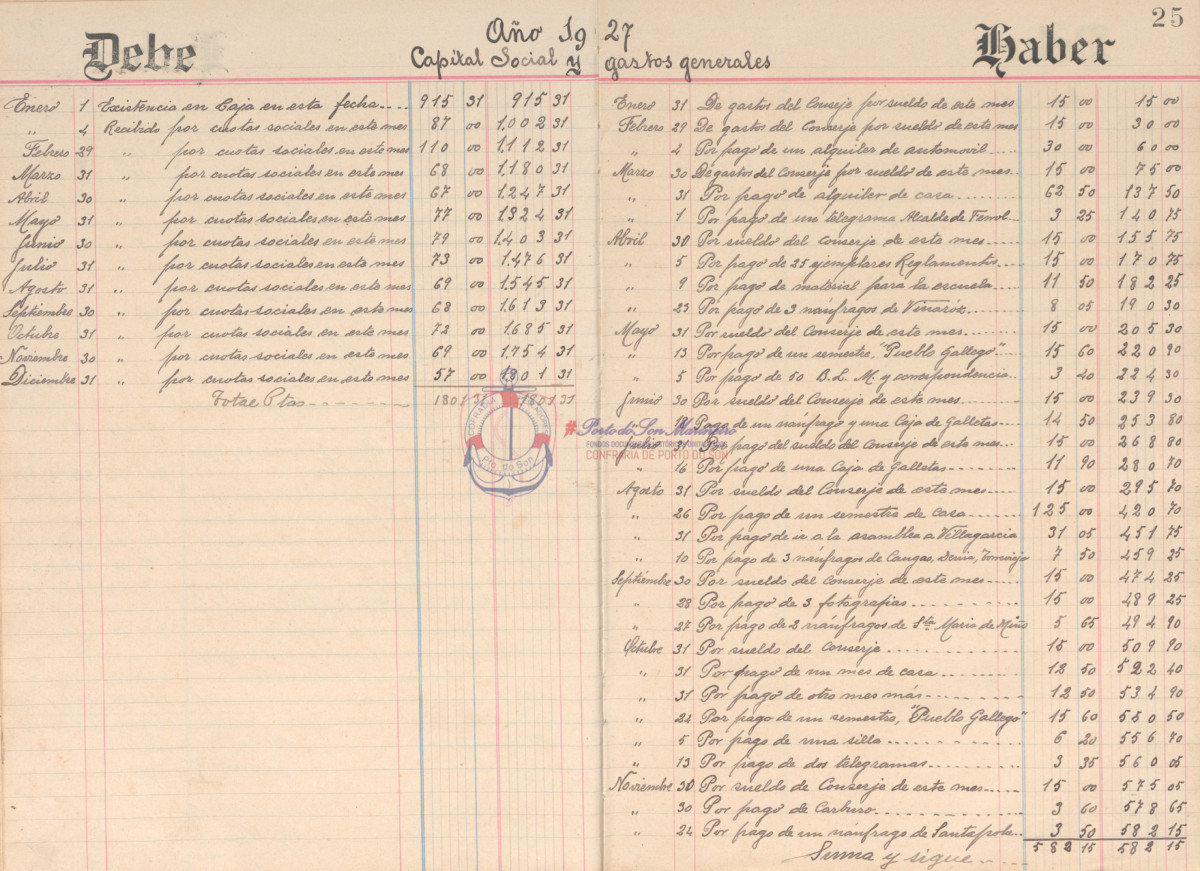 25
Debe Año 1927 Haber
Capital Social y gastos generales
Enero 1 Existencia en Caja en esta fecha.... 915 31 915 31
" 4 Recibido por cuotas sociales en este mes 87 00 1.002 31
Febrero 29 " por cuotas sociales en este mes 110 00 1.112 31
Marzo 31 " por cuotas sociales en este mes 68 00 1.180 31
Abril 30 " por cuotas sociales en este mes 67 00 1.247 31
Mayo 31 " por cuotas sociales en este mes 77 00 1.324 31
Junio 30 " por cuotas sociales en este mes 79 00 1.403 31
Julio 31 " por cuotas sociales en este mes 73 00 1.476 31
Agosto 31 " por cuotas sociales en este mes 69 00 1.545 31
Septiembre 30 " por cuotas sociales en este mes 68 00 1.613 31
Octubre 31 " por cuotas sociales en este mes 72 00 1.685 31
Noviembre 30 " por cuotas sociales en este mes 69 00 1.754 31
Diciembre 31 " por cuotas sociales en este mes 57 00 1801 31
Total Ptas 1801 31 1801 31
Enero 31 De gastos del Conseje por sueldo de este mes 15 00 15 00
Febrero 29 De gastos del Conserje por sueldo de este mes 15 00 30 00
" 4 Por pago de un alquiler de automovil 30 00 60 00
Marzo 30 De gastos del Conserje por sueldo de este mes 15 00 75 00
" 31 Por pago de alquiler de casa 62 50 137 50
" 1 Por pago de un telegrama Alcalde de Ferrol 3 25 140 75
Abril 30 Por sueldo del conserje de este mes 15 00 155 75
" 5 Por pago de 25 ejemplares Reglamentos 15 00 170 75
" 9 Por pago de material para la escuela 11 50 182 25
" 23 Por pago de 3 náufragos de Vinaróz 8 05 190 30
Mayo 31 Por sueldo del Conserje de este mes 15 00 205 30
" 13 Por pago de un semestre, "Pueblo Gallego" 15 60 220 90
" 5 Por pago de 50 B. L. M. y correspondencia 3 40 224 30
Junio 30 Por sueldo del Conserje de este mes 15 00 239 30
" Pago de un náufrago y una Caja de Galletas 14 50 253 80
Julio 31 Por pago del sueldo del Conserje de este mes 15 00 268 80
" 16 Por pago de una Caja de Galletas 11 90 280 70
Agosto 31 Por sueldo del Conserje de este mes 15 00 295 70
" 26 Por pago de un semestre de casa 125 00 420 70
" 31 Por pago de ir a la asamblea a Villagarcia 31 05 451 75
" 10 Por pago de 3 náufragos de Cangas, Denia, Torrevieja 7 50 459 25
Septiembre 30 Por sueldo del Conserje de este mes 15 00 474 25
" 28 Por pago de 3 fotografias 15 00 489 25
" 27 Por pago de 2 náufragos de Sta Maria de Miño 5 65 494 90
Octubre 31 Por sueldo del Conserje 15 00 509 90
" 31 Por pago de un mes de casa 12 50 522 40
" 31 Por pago de otro mes más 12 50 534 90
" 24 Por pago de un semestre, "Pueblo Gallego" 15 60 550 50
" 5 Por pago de una silla 6 20 556 70
" 13 Por pago de dos telegramas 3 35 560 05
Noviembre 30 Por sueldo de Conserje de este mes 15 00 575 05
" 30 Por pago de Carburo 3 60 578 65
" 24 Por pago de un náufrago de Santapola 3 50 582 15
Suma y sigue 582 15 582 15
Pto. do Son
#Porto do Son Mariñeiro
CONFRARÍA DE PORTO DO SON